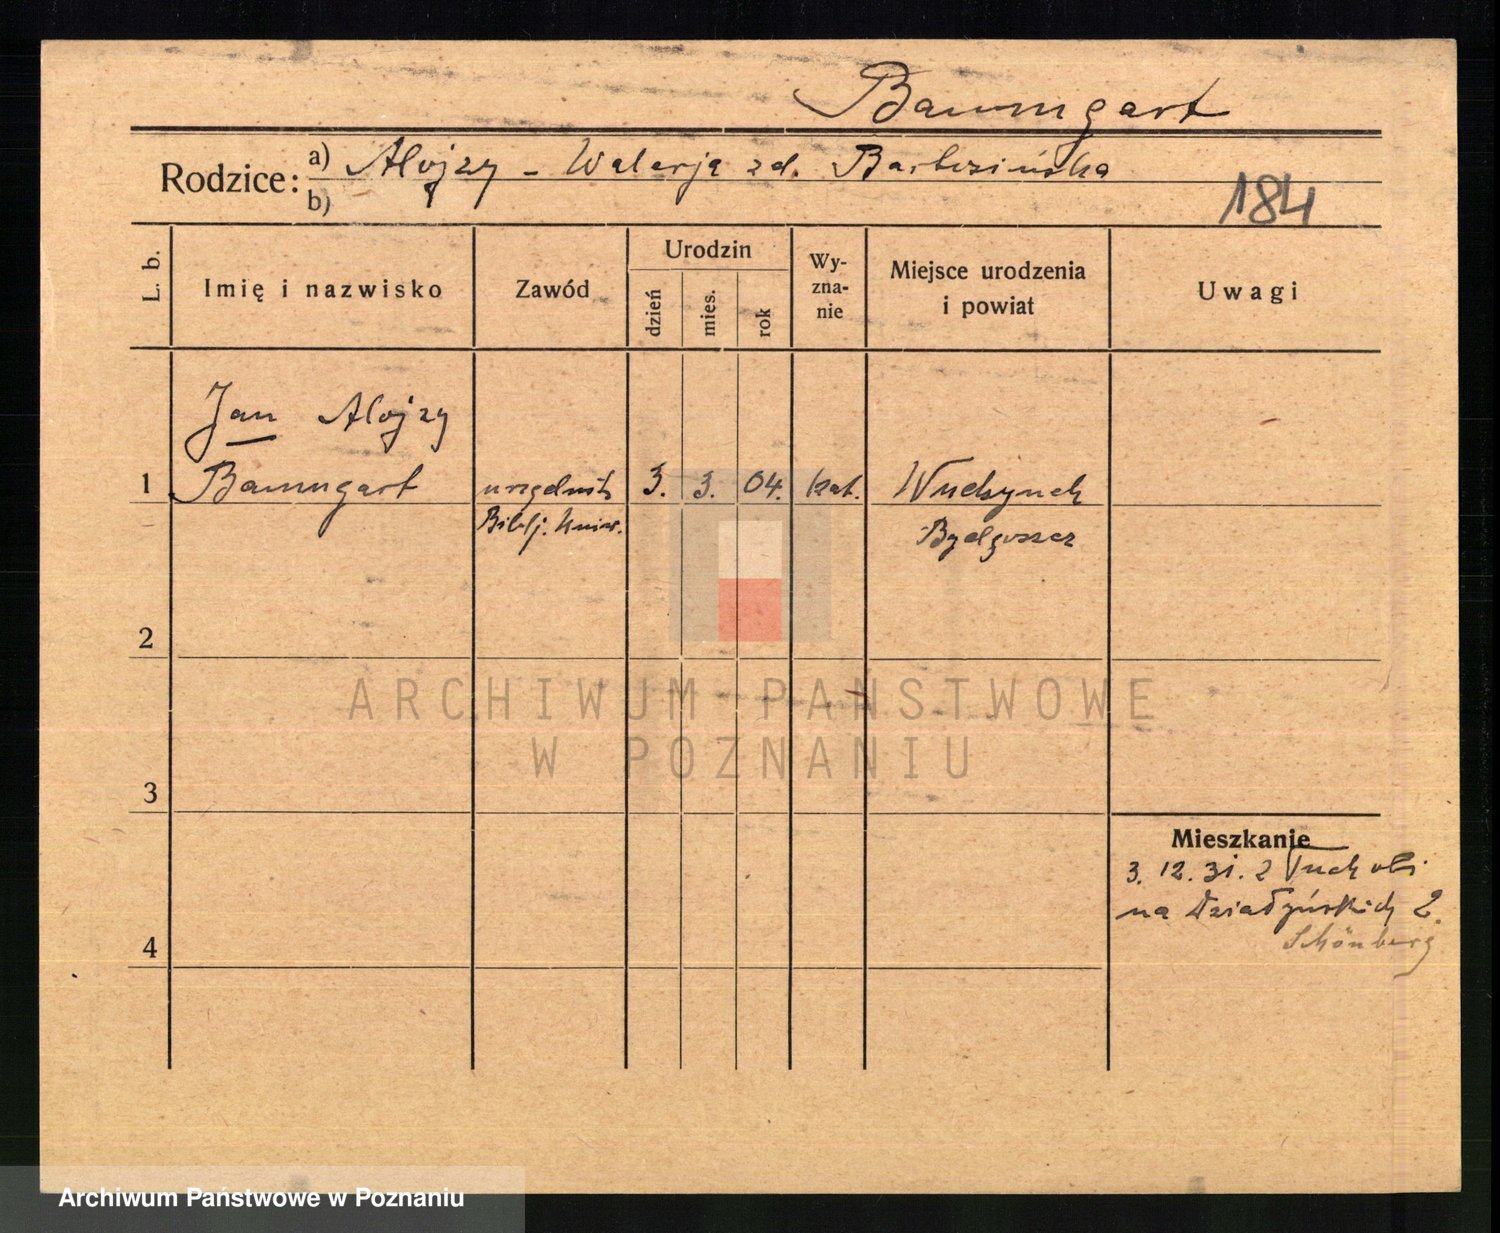 Baumgart
Rodzice: a) Alojzy - Walerja zd. Bartosińska
b)
184
L. b.
Imię i nazwisko
Zawód
Urodzin
dzień
mies.
rok
Wy-
zna-
nie
Miejsce urodzenia
i powiat
Uwagi
Jan Alojzy
1 Baumgart urzędnik 3. 3. 04. kat.
Biblj. Uniw. Bydgoszcz
2
ARCHIWUM PAŃSTWOWE
W POZNANIU
3
Mieszkanie
3. 12. 31. z Tucholi
na Działyńskich 2.
Schönberg
4
Archiwum Państwowe w Poznaniu